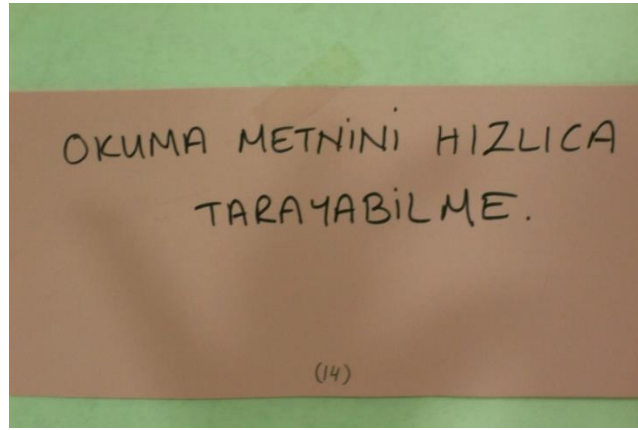 OKUMA METNİNİ HIZLICA
TARAYABİLME.
(14)